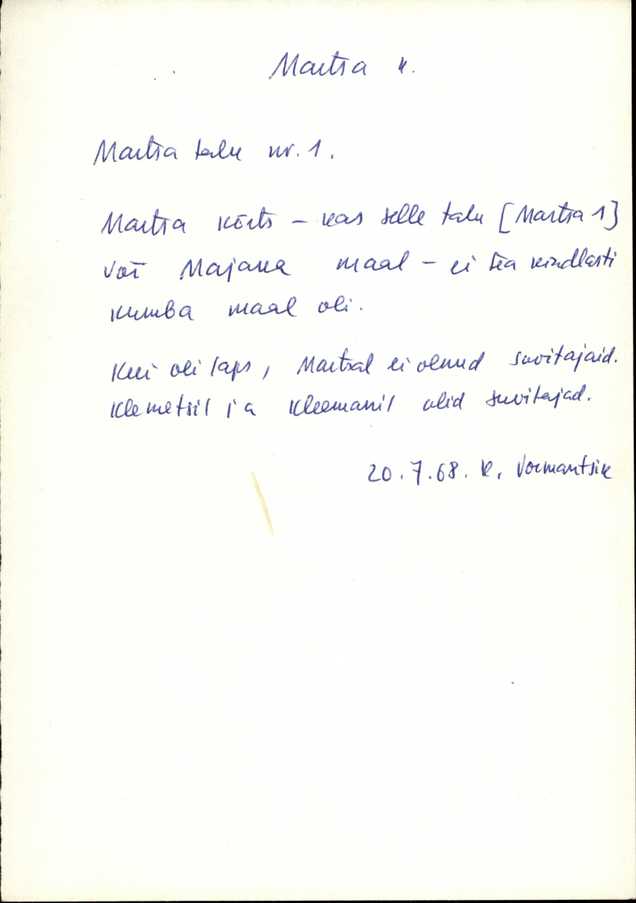 Martsa k.
Martsa talu nr. 1.
Martsa kõrts – kas selle talu [Martsa 1]
või Majaka maal – ei tea kindlasti
kumba maal oli.
Kui oli laps, Martsal ei olnud suvitajaid.
Klemetsil ja Kleemanil olid suvitajad.
20.7.68. K. Vormantsik